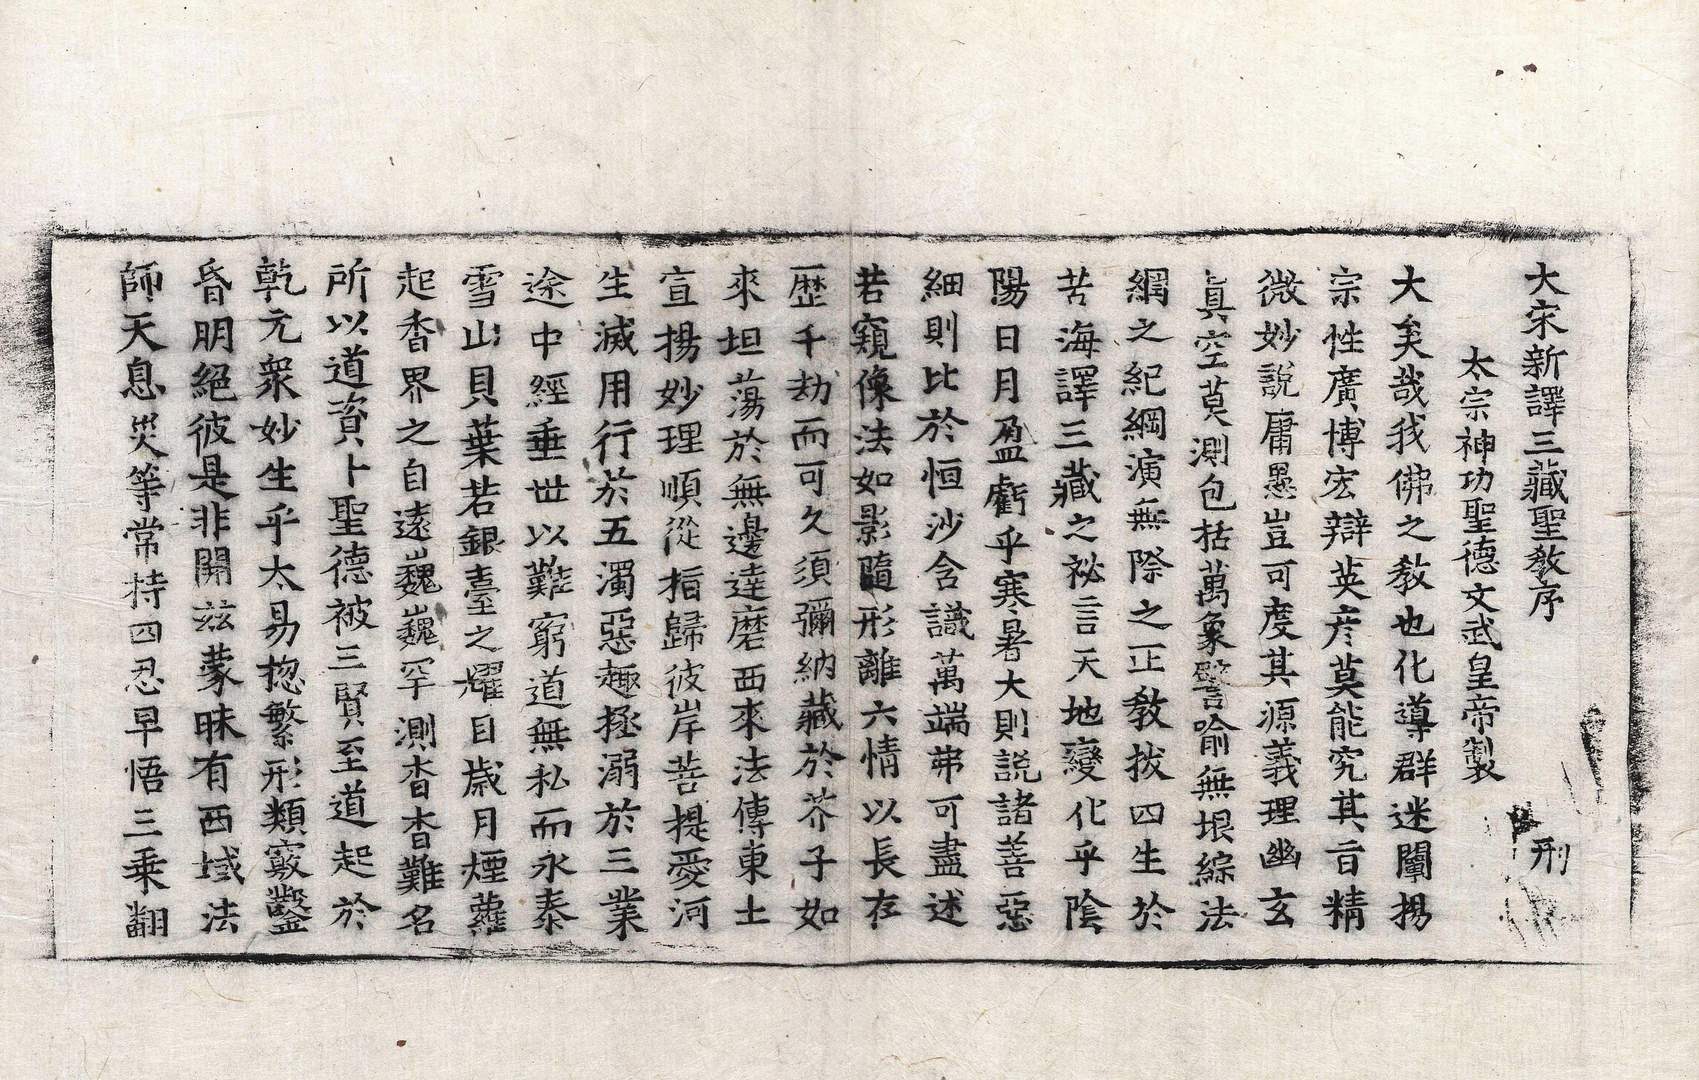 大宋新譯三藏聖敎序 刑
太宗神功聖德文武皇帝製
大矣哉我佛之敎也化導群迷闡揚
宗性廣博宏辯英彦莫能究其旨精
微妙說庸愚豈可度其源義理幽玄
眞空莫測包括萬象譬喻無垠綜法
網之紀綱演無際之正敎拔四生於
苦海譯三藏之祕言天地變化乎陰
陽日月盈虧乎寒暑大則說諸善惡
細則比於恒沙含識萬端弗可盡述
若窺像法如影隨形離六情以長存
歷千劫而可久須彌納藏於芥子如
來坦蕩於無邊達磨西來法傳東土
宣揚妙理順從指歸彼岸菩提愛河
生滅用行於五濁惡趣拯溺於三業
途中經垂世以難窮道無私而永泰
雪山貝葉若銀臺之耀目歲月煙蘿
起香界之自遠巍巍罕測杳杳難名
所以道資卜聖德被三賢至道起於
乾元衆妙生乎太易揔繁形類竅鑿
昏明絕彼是非開玆蒙昧有西域法
師天息災等常持四忍早悟三乘翻